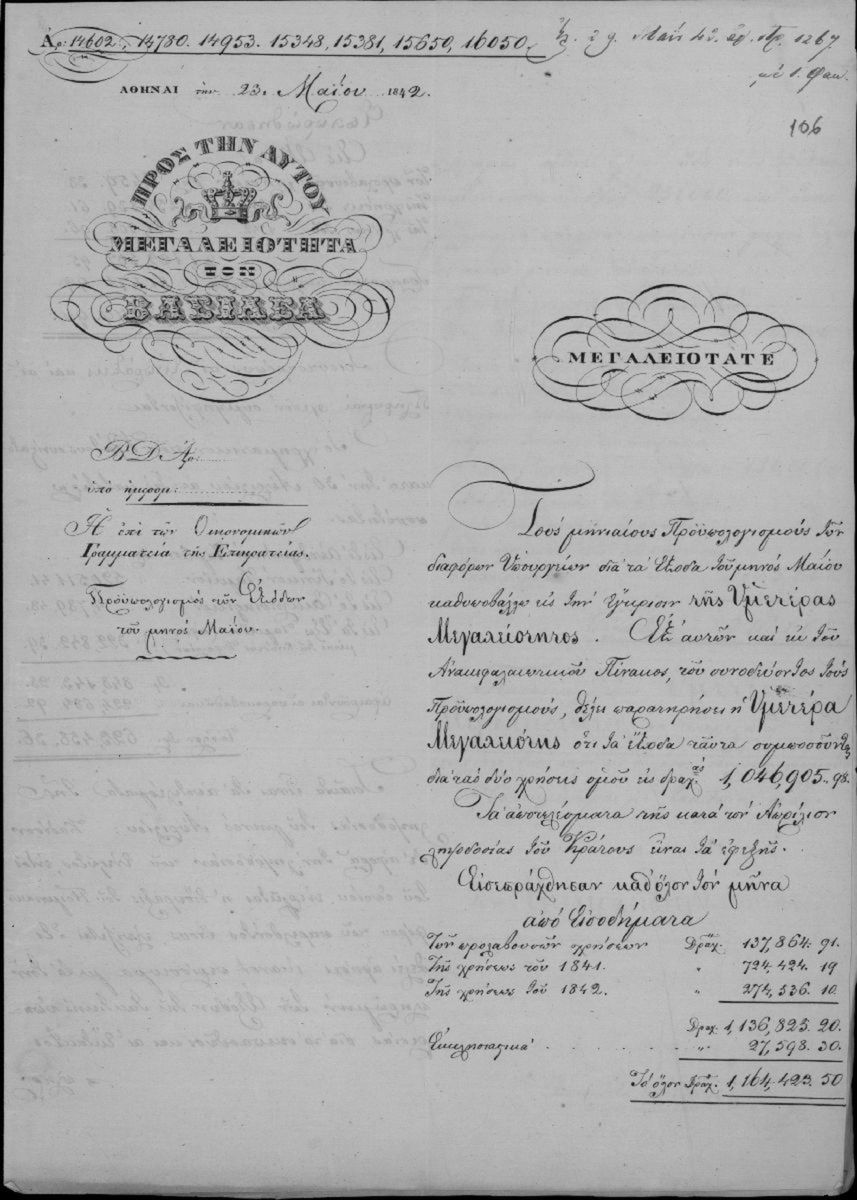 Ἀρ: 14602, 14780. 14953. 15348, 15381, 15650, 16050.
106
ΑΘΗΝΑΙ τὴν 23. Μαΐου 1842.
ΠΡΟΣ ΤΗΝ ΑΥΤΟΥ
ΜΕΓΑΛΕΙΟΤΗΤΑ
ΤΟΝ
ΒΑΣΙΛΕΑ
ΜΕΓΑΛΕΙΟΤΑΤΕ
Β Δ Ἀρ:
ὑπὸ ἡμερομ:
Ἡ ἐπὶ τῶν Οἰκονομικῶν
Γραμματεία τῆς Ἐπικρατείας.
Προϋπολογισμὸς τῶν Ἐξόδων
τοῦ μηνὸς Μαΐου.
Τοὺς μηνιαίους Προϋπολογισμοὺς τῶν
διαφόρων Ὑπουργείων διὰ τὰ ἔξοδα τοῦ μηνὸς Μαΐου
καθυποβάλλω εἰς τὴν ἔγκρισιν τῆς Ὑμετέρας
Μεγαλειότητος. Ἐξ αὐτῶν καὶ ἐκ τοῦ
Ἀνακεφαλαιωτικοῦ Πίνακος, τοῦ συνοδεύοντος τοὺς
Προϋπολογισμούς, θέλει παρατηρήσει ἡ Ὑμετέρα
Μεγαλειότης ὅτι τὰ ἔξοδα ταῦτα συμποσοῦνται
διὰ τὰς δύο χρήσεις ὁμοῦ εἰς δραχμὰς 1,046,905. 98.
Τὰ ἀποτελέσματα τῆς κατὰ τὸν Ἀπρίλιον
ληψοδοσίας τοῦ Κράτους εἶναι τὰ ἐφεξῆς.
Εἰσεπράχθησαν καθ' ὅλον τὸν μῆνα
ἀπὸ Εἰσοδήματα
Τῶν προλαβουσῶν χρήσεων Δραχ. 137,864. 91.
Τῆς χρήσεως τοῦ 1841. " 724,424. 19
Τῆς χρήσεως τοῦ 1842. " 274,536. 10.
Δραχ. 1,136,825. 20.
Ἐκκλησιαστικὰ " 27,598. 30.
Τὸ ὅλον Δραχ. 1,164,423. 50